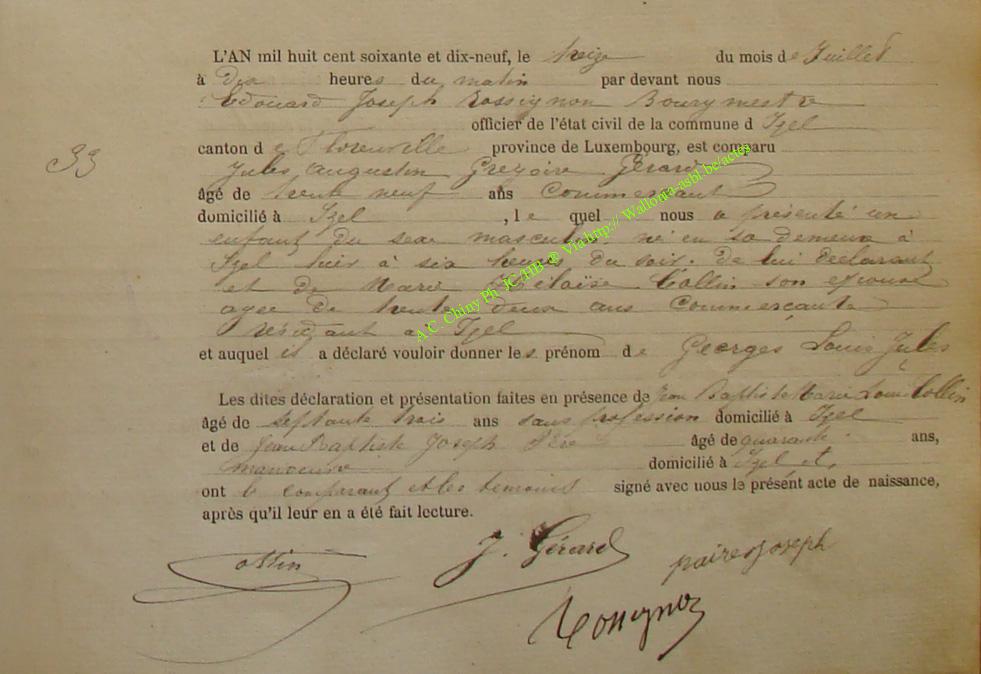 L'AN mil huit cent soixante et dix-neuf, le treize du mois de Juillet
à dix heures du matin par devant nous
Edouard Joseph Rossignon Bourgmestre
officier de l'état civil de la commune d Izel
33
canton de Florenville province de Luxembourg, est comparu
Jules Augustin Grégoire Gérard
âgé de trente neuf ans Commerçant
domicilié à Izel, le quel nous a présenté un
enfant du sexe masculin né en sa demeure à
Izel hier à six heures du soir. de lui déclarant
et de Marie Héloïse Collin son épouse
agée de trente deux ans Commerçante
résidant à Izel
et auquel il a déclaré vouloir donner les prénom de Georges Louis Jules
Les dites déclaration et présentation faites en présence de Jean Baptiste Marie Louis Collin
âgé de septante trois ans sans profession domicilié à Izel
et de Jean Baptiste Joseph âgé de quarante ans,
manoeuvre domicilié à Izel et,
ont le comparant et les temoins signé avec nous le présent acte de naissance,
après qu'il leur en a été fait lecture.
J. Gérard
paires joseph
Rossignon
A.C. Chiny Ph JC/HB ® Via http:// Wallonia-asbl.be/actes